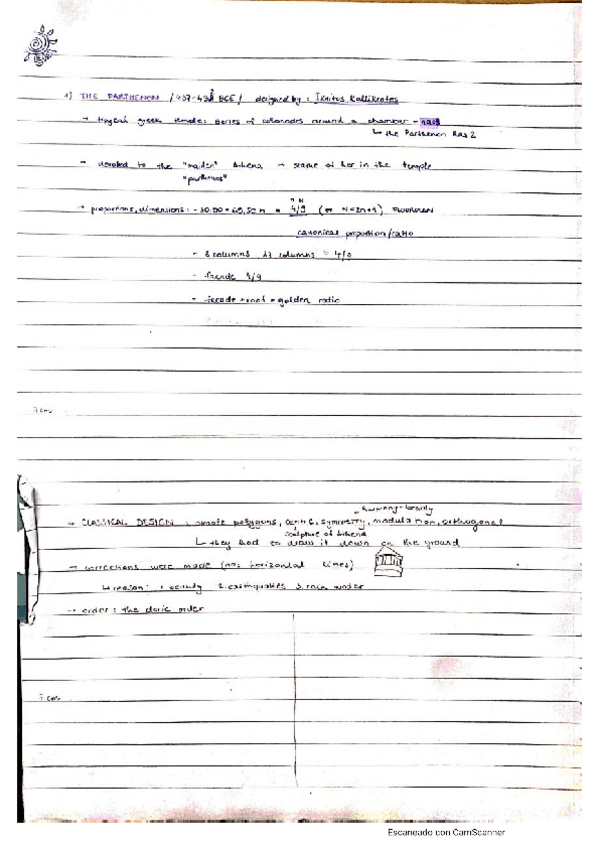 1) THE PARTHENON /437-438 BCE/ designed by: Iknitus, Kallikrates
→ typical greek temple: series of colonades around a chamber - naos
↳ the Parthenon has 2
- devoted to the "maiden" Athena → statue of her in the temple
"parthenos"
→ proportions, dimensions: - 30,80 × 69,50 m = 4/9 (or N=2n+1)
canonical proportion/ratio
- 8 columns 17 columns = 4/9
- facade 4/9
- facade + roof = golden ratio
7 cm
→ CLASSICAL DESIGN: simple polygons, symmetry, modulation, orthogonal
sculpture of Athena
↳ they had to draw it down on the ground
→ corrections were made (no horizontal lines)
↳ reason: 1. beauty 2. earthquakes 3. rain water
→ order: the doric order
7 cm
Escaneado con CamScanner